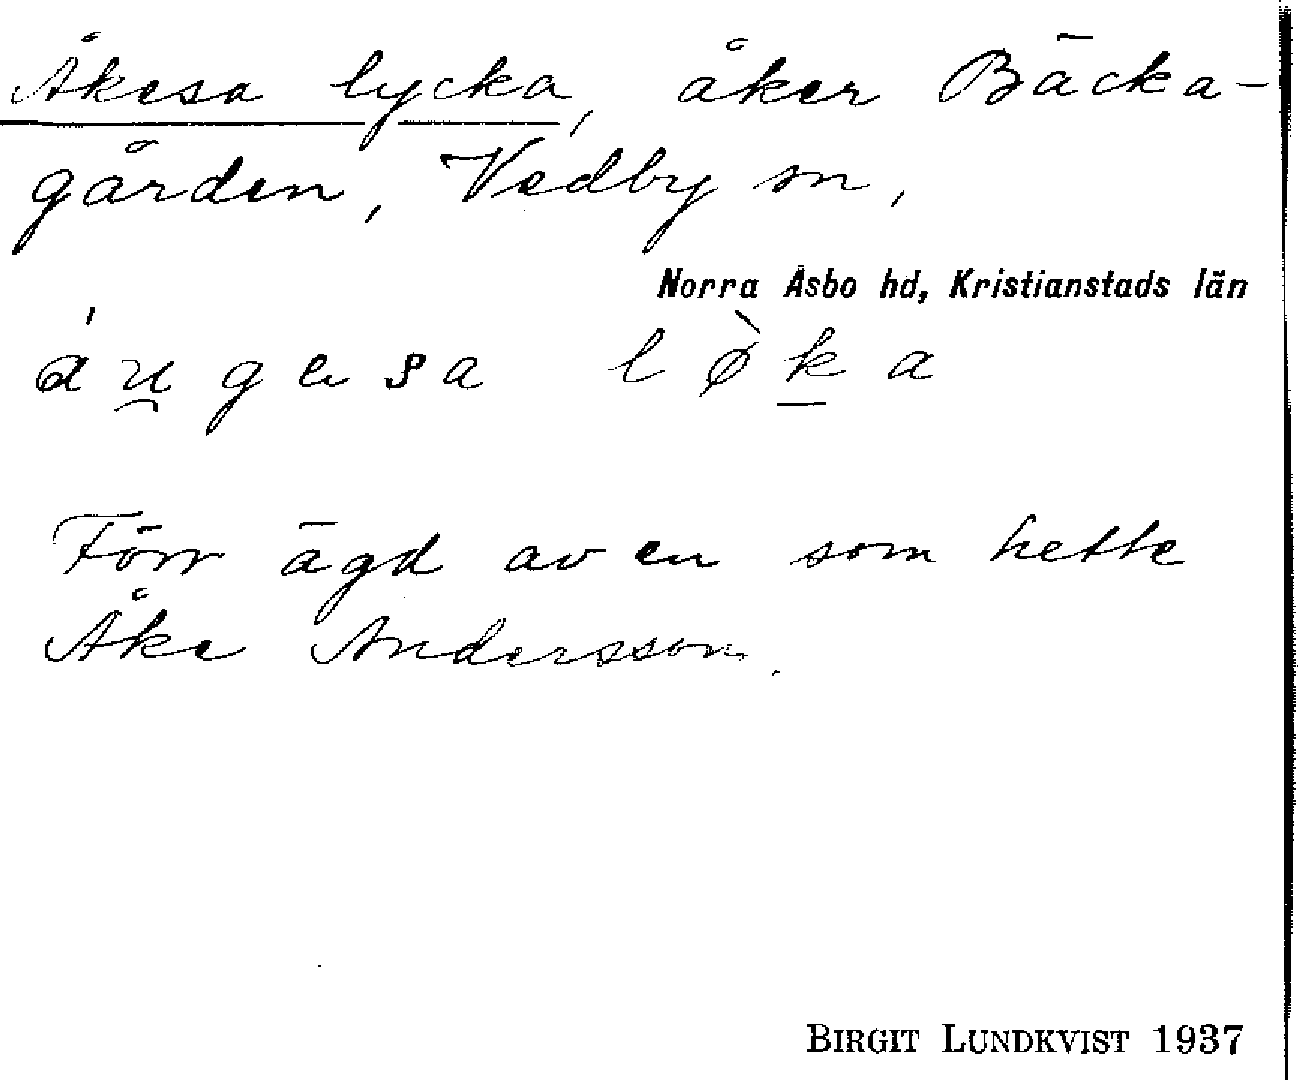 Åkesa lycka, åker Bäcka-
gården, Vedby sn,
Norra Åsbo hd, Kristianstads län
áu̯gesa lø̀ḵa
Förr ägd av en som hette
Åke Andersson.
BIRGIT LUNDKVIST 1937